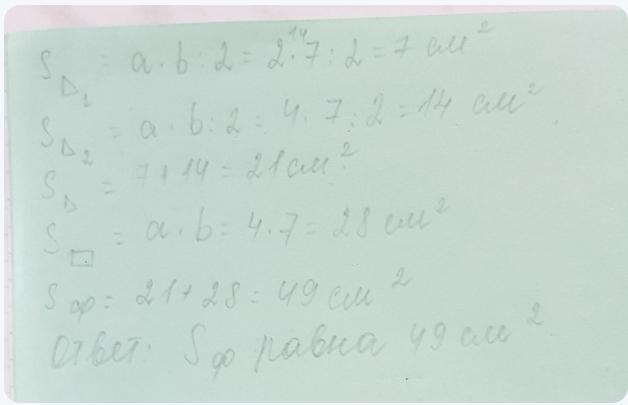 S△₁ = a · b : 2 = 2 · 7 : 2 = 7 см²
S△₂ = a · b : 2 = 4 · 7 : 2 = 14 см²
S△ = 7 + 14 = 21 см²
S▭ = a · b = 4 · 7 = 28 см²
Sф = 21 + 28 = 49 см²
Ответ: Sф равна 49 см²